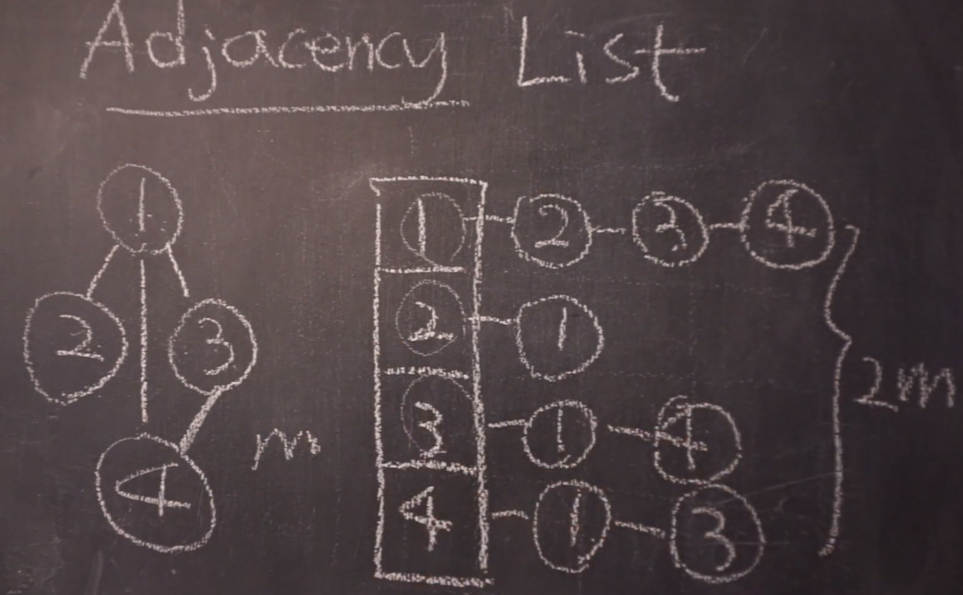 Adjacency List
1
2 3
4
m
1 2 3 4
2 1
3 1 4
4 1 3
2m